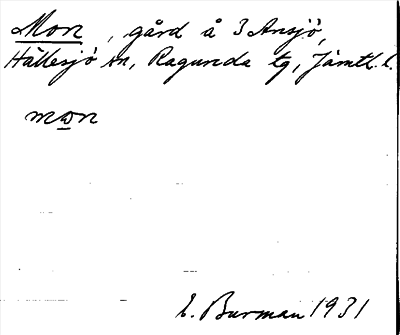 Mon, gård å 3 Ansjö,
Hällesjö sn, Ragunda tg, Jämtl. l.
mωn
E. Burman 1931